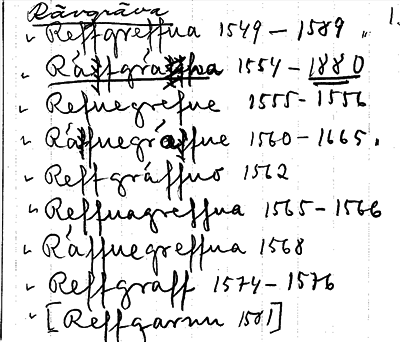 Rävgräva 1.
Reffgreffua 1549 – 1589 "
Räffgräffua 1554 – 1880
Refuegrefue 1555 - 1556
Räffuegräffue 1560 – 1665.
Reffgräffuo 1562
Reffuagreffua 1565 – 1566
Räffuegreffua 1568
Reffgraff 1574 – 1576
[Reffgarnu 1581]